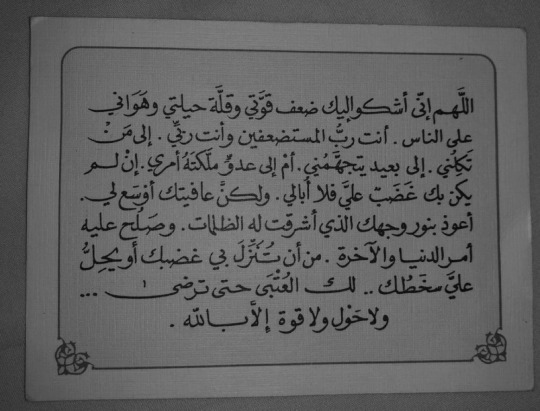 اللَّهم إنّي أشكو إليك ضعف قوَّتي وقلَّة حيلتي وهَوَاني
على الناس . أنت ربُّ المستضعفين وأنت ربّيِ . إلى مَنْ
تَكِلُني . إلى بعيد يتجهَّمُني . أمْ إلى عدوٍّ ملَّكتَهُ أمري . إنْ لم
يكن بك غَضَبٌ عليَّ فلا أُبالي . ولكنَّ عافيتك أوْسَع لي .
أعوذ بنور وجهك الذي أشرقت له الظلمات . وصَلُح عليه
أمر الدنيا والآخرة . من أن تُنَزِّلَ بي غضبك أو يحِلَُّ
عليَّ سخَطُك .. لك العُتْبَى حتى ترضى ١ ...
ولا حَوْل ولا قوة إلاَّ بالله .